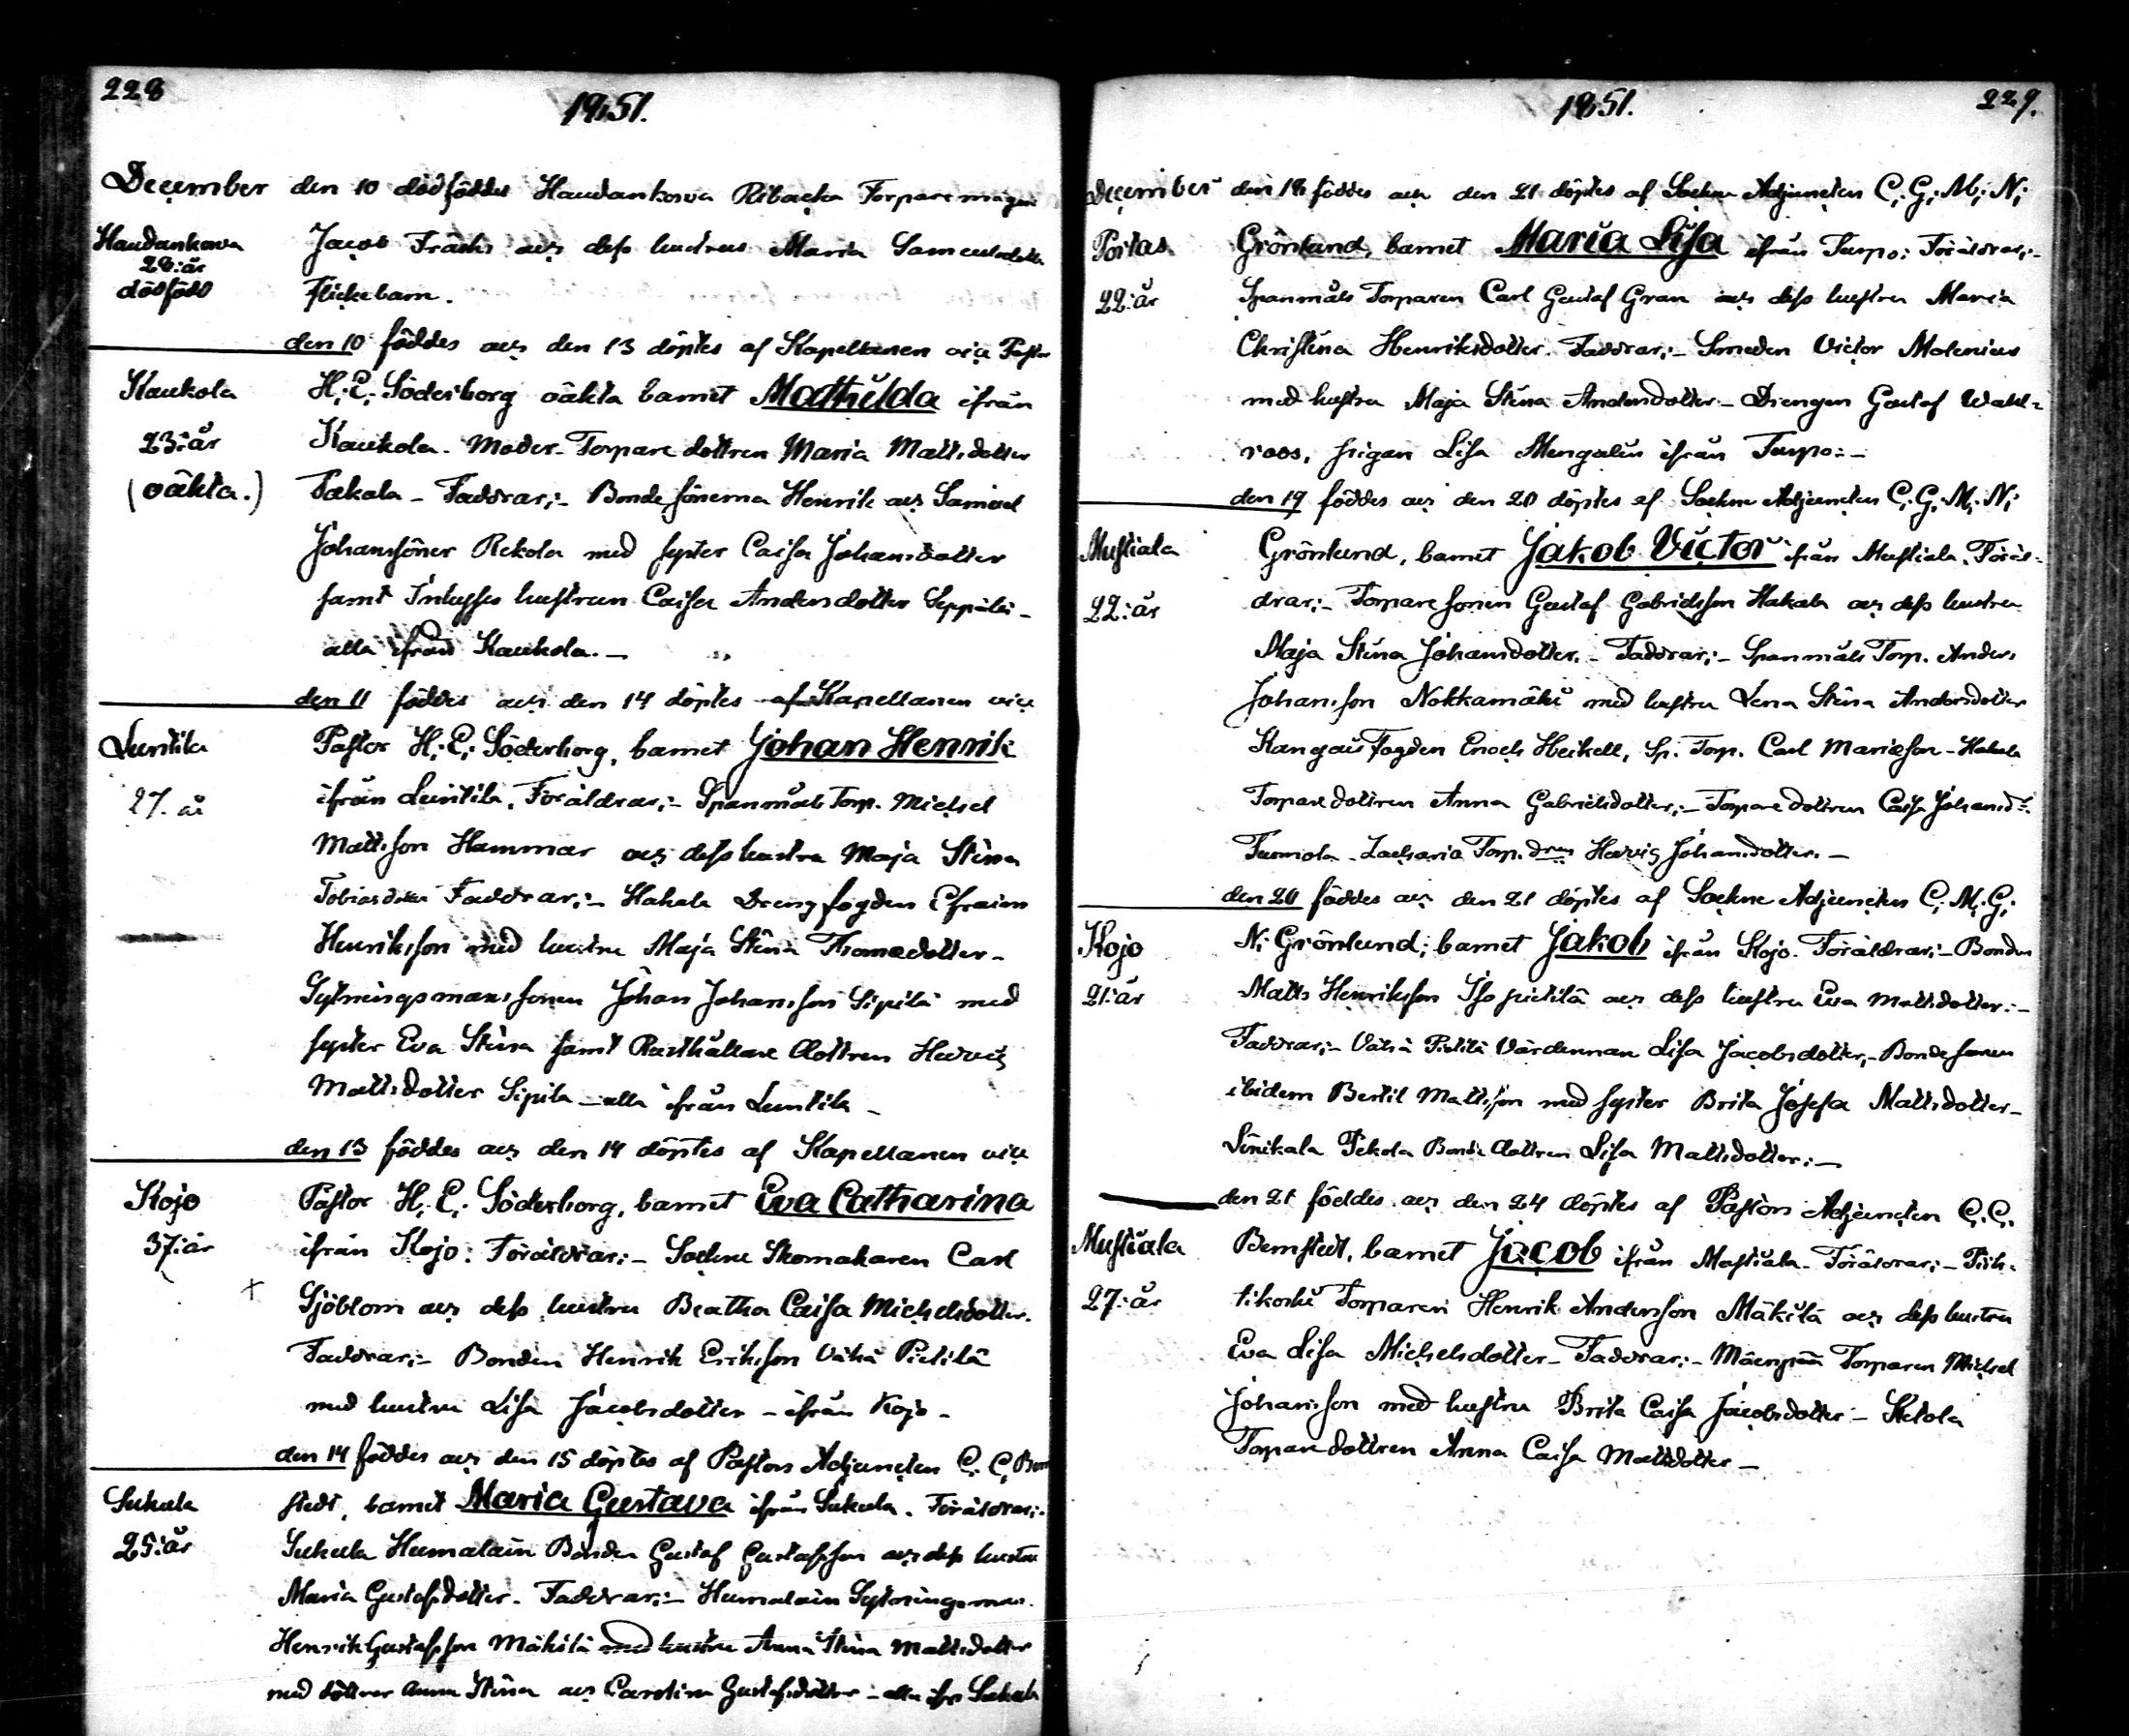 228
1851.
December den 10 dödföddes Haudankorva Ribacka Torparemågen
Haudankorva Jacob Fräski och dess hustrus Maria Samuelsdotter
28: år
dödfödd Flickebarn.
den 10 föddes och den 13 döptes af Kapellanen vice Pastor
Kaukola H: E: Söderborg oäkta barnet Mathilda ifrån
23: år Kaukola. Moder Torpare dottren Maria Mattsdotter
(oäkta.) Takala – Faddrar:– Bondesönerna Henrik och Samuel
Johanssöner Rekola med syster Caisa Johansdotter
samt Inhyses hustrun Caisa Andersdotter Seppälä –
alla ifrån Kaukola. –
den 11 föddes och den 14 döptes af Kapellanen vice
Luntila Pastor H: E: Söderborg, barnet Johan Henrik
27. år ifrån Luntila. Föräldrar:– Spanmåls Torp. Michel
Mattsson Hammar och dess hustru Maja Stina
Tobiasdotter Faddrar:– Hakala Drengfogden Efraim
Henriksson med hustru Maja Stina Thomædotter –
Sytningsmans sonen Johan Johansson Sipilä med
syster Eva Stina samt Rusthållare dottren Hedvig
Mattsdotter Sipilä – alla ifrån Luntila –
den 13 föddes och den 14 döptes af Kapellanen vice
Kojo Pastor H: E: Söderborg, barnet Eva Catharina
37: år ifrån Kojo: Föräldrar:– Sockne Skomakaren Carl
Sjöblom och dess hustru Beatha Caisa Michelsdotter.
Faddrar:– Bonden Henrik Eriksson Vähä Pietilä
med hustru Lisa Jacobsdotter – ifrån Kojo –
den 14 föddes och den 15 döptes af Pastors Adjuncten C: C: Bern
Sukula stedt, barnet Maria Gustava ifrån Sukula. Föräldrar:–
25: år Sukula Humalain Bonden Gustaf Gustafsson och dess hustru
Maria Gustafsdotter. Faddrar:– Humalain Sytningsman
Henrik Gustafsson Mäkilä med hustru Anna Stina Mattsdotter
med döttrar Anna Stina och Carolina Gustafsdötter – alla ifr. Sukula
1851.
229.
December den 18 föddes och den 21 döptes af Sockne Adjuncten C: G: M: N:
Portas Grönlund, barnet Maria Lisa ifrån Turpo: Föräldrar:–
22: år Spanmåls Torparen Carl Gustaf Gran och dess hustru Maria
Christina Henriksdotter. Faddrar:– Smeden Victor Molenius
med hustru Maja Stina Andersdotter – Drengen Gustaf Wahl-
roos, pigan Lisa Mengalin ifrån Turpo:–
den 19 föddes och den 20 döptes af Sockne Adjuncten C: G: M: N:
Mustiala Grönlund, barnet Jakob Victor ifrån Mustiala. Föräl-
22: år drar:– Torpare sonen Gustaf Gabrielsson Hakala och dess hustru
Maja Stina Johansdotter. – Faddrar:– Spanmåls Torp. Anders
Johansson Nokkamäki med hustru Lena Stina Andersdotter
Kangais Fogden Enoch Heikell, Sp. Torp. Carl Mariæson – Hakala
Torpare dottren Anna Gabrielsdotter:– Torpare dottren Caisa Johansd:r
Tuomola – Zacharia Torp. dren Hedvig Johansdotter. –
den 20 föddes och den 21 döptes af Sockne Adjuncten C: M: G:
Kojo N: Grönlund; barnet Jakob ifrån Kojo. Föräldrar:– Bonden
21: år Matts Henriksson Iso pietilä och dess hustru Eva Mattsdotter:–
Faddrar:– Vähä Pietilä Värdinnan Lisa Jacobsdotter,– Bonde sonen
ibidem Bertil Mattsson med syster Brita Josefa Mattsdotter –
Linikala Pekola Bonde dottren Lisa Mattsdotter:–
den 21 föddes och den 24 döptes af Pastors Adjuncten C. C.
Mustiala Bernstedt, barnet Jacob ifrån Mustiala. Föräldrar:– Piih-
27: år tikoski Torparen Henrik Andersson Mäkilä och dess hustru
Eva Lisa Michelsdotter – Faddrar:– Mäenpää Torparen Michel
Johansson med hustru Brita Caisa Jacobsdotter – Ketola
Torpare dottren Anna Caisa Mattsdotter –